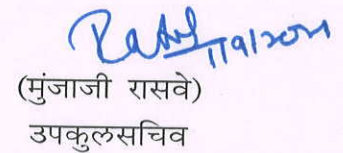 11/9/2024
(मुंजाजी रासवे)
उपकुलसचिव